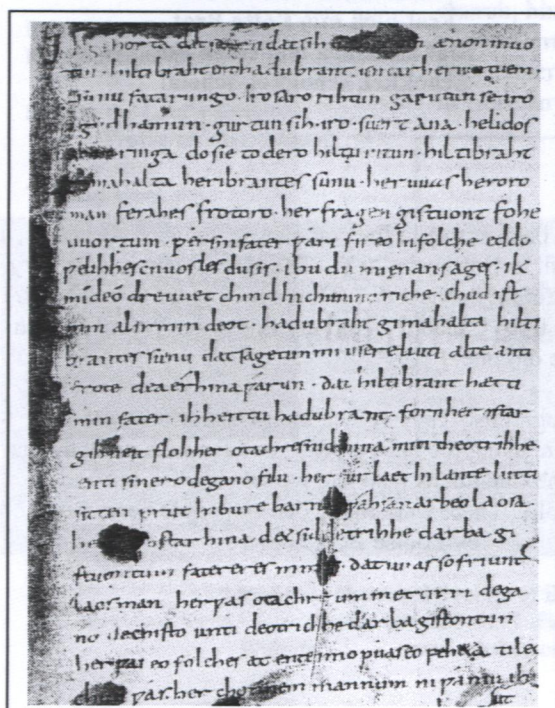 gihorta dat seggen dat sih ænon muo
tin · hiltibraht enti hadubrant · untar heriun tuem
sunu fatarungo · iro saro rihtun garutun se iro
gudhamun · gurtun sih · iro · suert ana · helidos
ringa do sie to dero hiltu ritun · hiltibraht
gimahalta heribrantes sunu · her uuas heroro
man ferahes frotoro · her fragen gistuont fohe
uuortum · ƿer sin fater ƿari fireo In folche eddo
ƿelihhes cnuosles du sis · ibu du mi enan sages · ik
mi deo dre uuet chind In chuninc riche · chud ist
min al irmin deot · hadubraht gimahalta hilti
brantes sunu dat sagetun mi usere liuti alte anti
frote dea érhina ƿarun · dat hiltibrant hætti
min fater · ih heittu hadubrant · forn her ostar
gihueit floh her otachres nid hina miti theotrihhe
enti sinero degano filu · her furlaet In lante luttila
sitten prut In bure barn unƿahsan arbeo laosa
ostar hina det sid detrihhe darba gi
stuontun fatereres mines · dat uuas so friunt
laos man her ƿas otachre ummettirri dega
no dechisto unti deotrichhe darba gistontun
her ƿas eo folches at ente imo ƿuas eo ƿeheta ti leop
chud ƿas her chonnem mannum ni ƿaniu ih